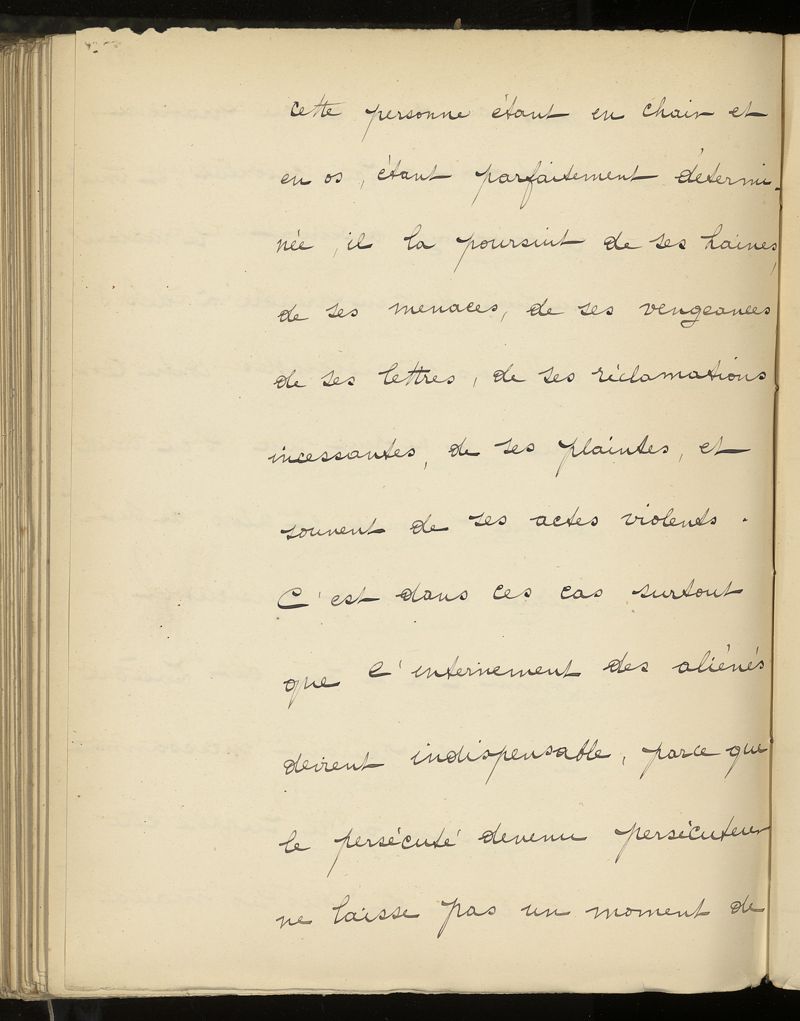 cette personne étant en chair et
en os, étant parfaitement détermi-
née, il la poursuit de ses haines,
de ses menaces, de ses vengeances
de ses lettres, de ses réclamations
incessantes, de ses plaintes, et
souvent de ses actes violents.
C'est dans ces cas surtout
que l'internement des aliénés
devient indispensable, parce que
le persécuté devenu persécuteur
ne laisse pas un moment de